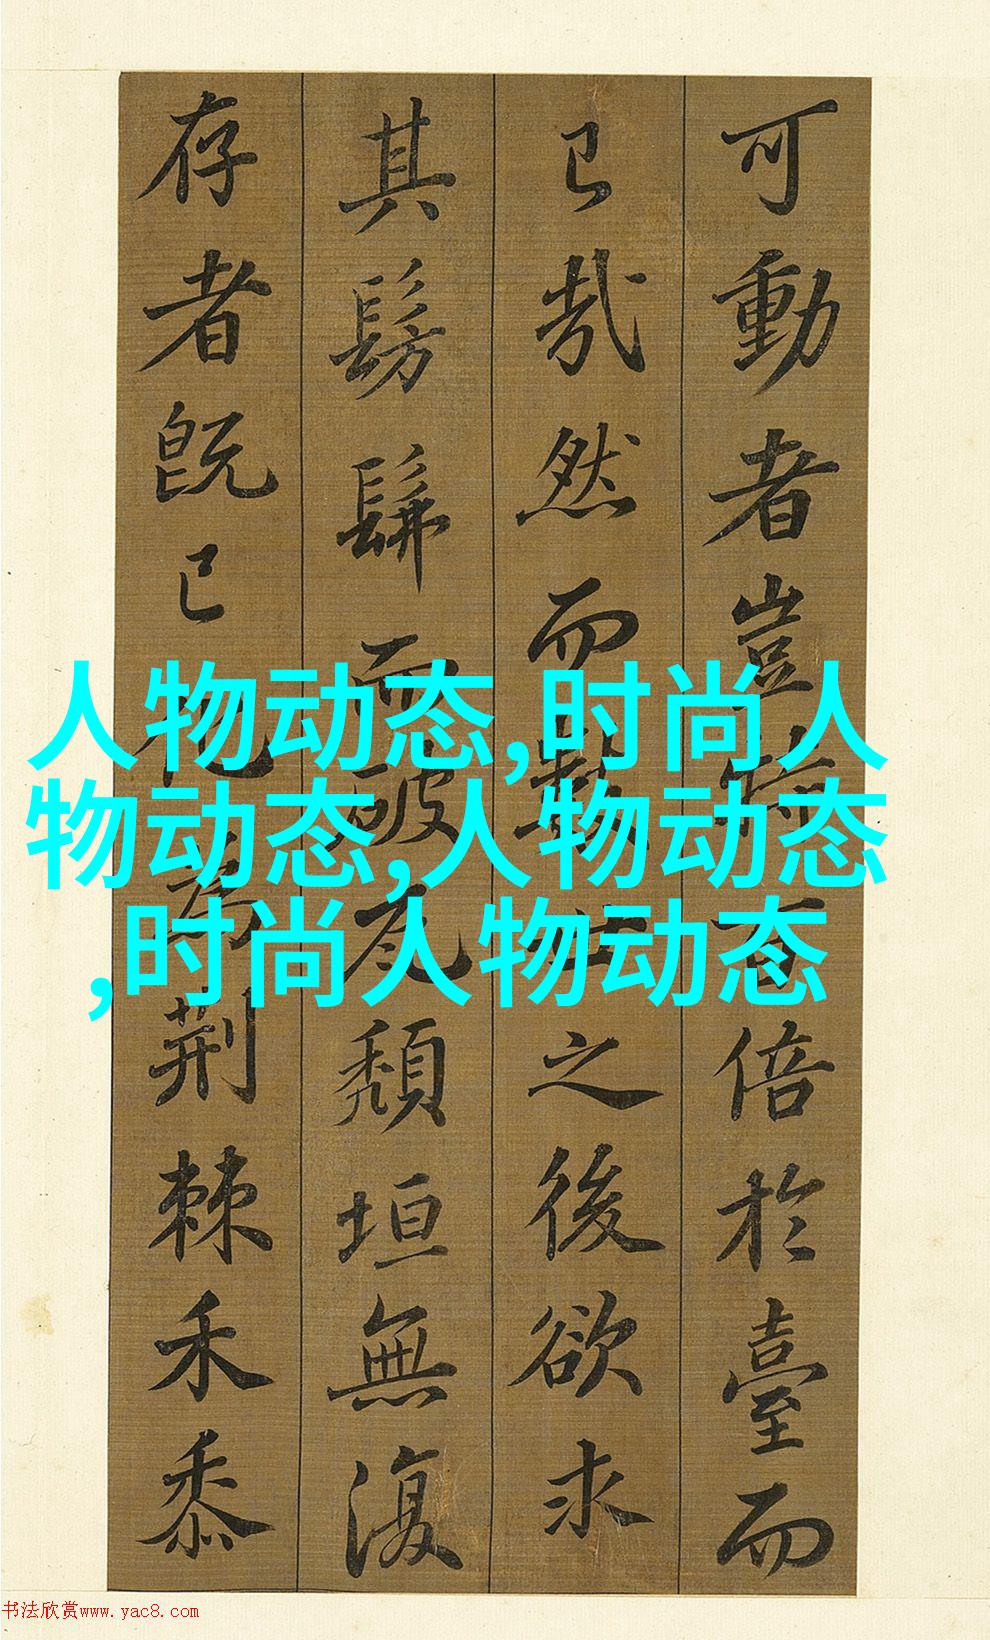 可動者豈特百倍於臺而
已哉然而數世之後欲求
其髣髴而破瓦頹垣無復
存者既已化為荊棘禾黍
人物动态,时尚人
物动态,人物动态
,时尚人物动态
书法欣赏www.yac8.com